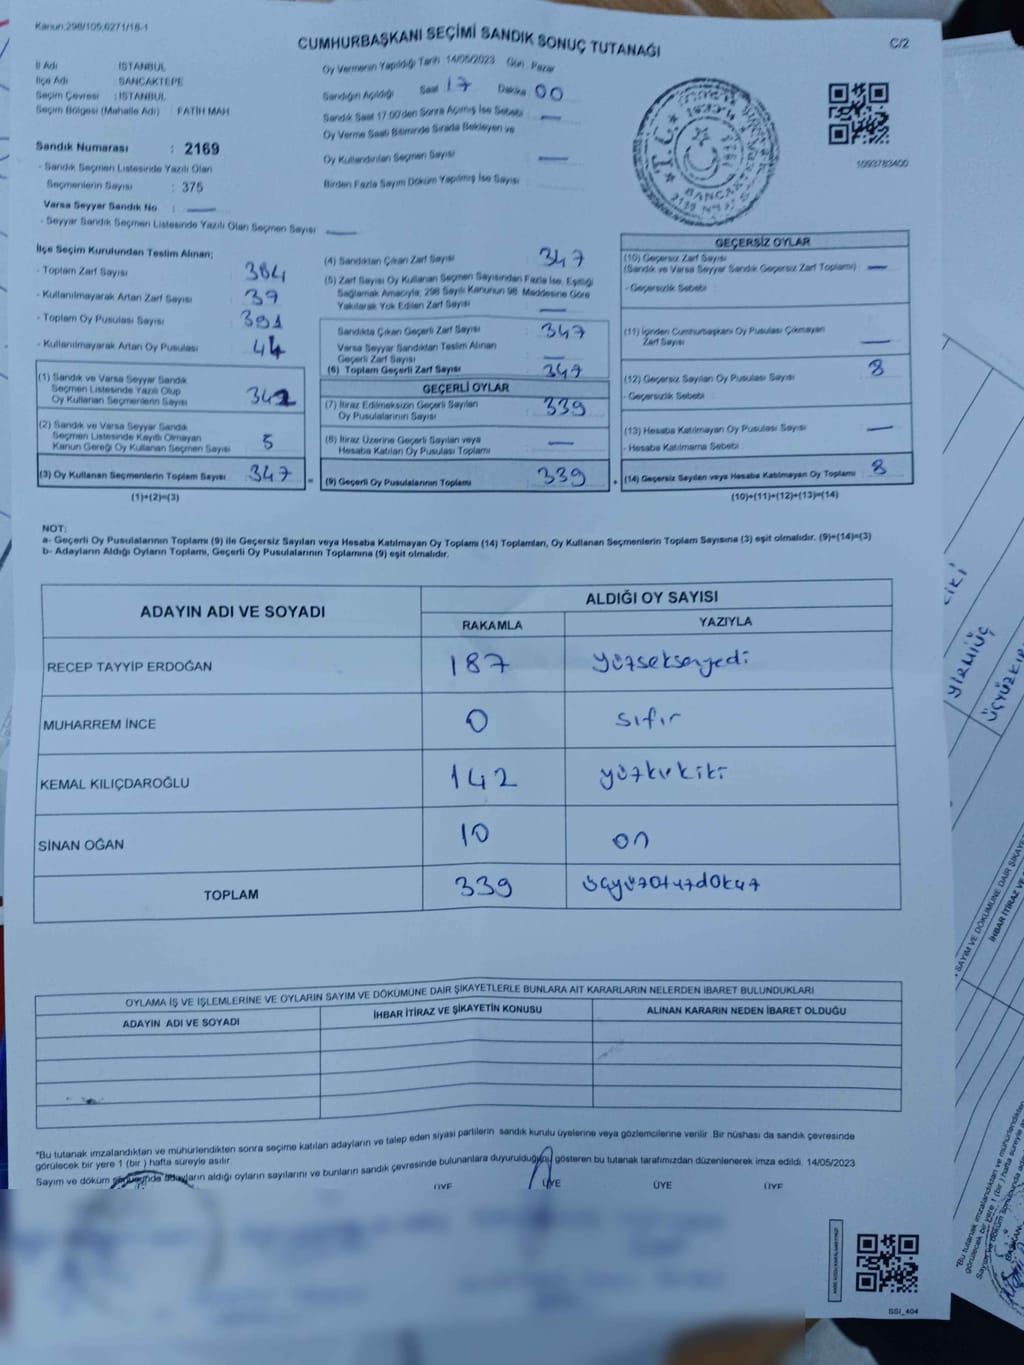 Kanun:298/105,6271/18-1
CUMHURBAŞKANI SEÇİMİ SANDIK SONUÇ TUTANAĞI
C/2
İl Adı : İSTANBUL
İlçe Adı : SANCAKTEPE
Seçim Çevresi : İSTANBUL
Seçim Bölgesi (Mahalle Adı) : FATİH MAH.
Sandık Numarası : 2169
- Sandık Seçmen Listesinde Yazılı Olan
Seçmenlerin Sayısı : 375
Varsa Seyyar Sandık No : —
- Seyyar Sandık Seçmen Listesinde Yazılı Olan Seçmen Sayısı : —
Oy Vermenin Yapıldığı Tarih 14/05/2023 Gün Pazar
Sandığın Açıldığı Saat 17 Dakika 00
Sandık Saat 17.00'den Sonra Açılmış İse Sebebi —
Oy Verme Saati Bitiminde Sırada Bekleyen ve
Oy Kullandırılan Seçmen Sayısı —
Birden Fazla Sayım Döküm Yapılmış İse Sayısı
T.C.
SANCAKTEPE
1093783400
İlçe Seçim Kurulundan Teslim Alınan;
- Toplam Zarf Sayısı 384
- Kullanılmayarak Artan Zarf Sayısı 39
- Toplam Oy Pusulası Sayısı 391
- Kullanılmayarak Artan Oy Pusulası 44
(1) Sandık ve Varsa Seyyar Sandık
Seçmen Listesinde Yazılı Olup
Oy Kullanan Seçmenlerin Sayısı 342
(2) Sandık ve Varsa Seyyar Sandık
Seçmen Listesinde Kayıtlı Olmayan
Kanun Gereği Oy Kullanan Seçmen Sayısı 5
(3) Oy Kullanan Seçmenlerin Toplam Sayısı 347
(1)+(2)=(3)
(4) Sandıktan Çıkan Zarf Sayısı 347
(5) Zarf Sayısı Oy Kullanan Seçmen Sayısından Fazla İse, Eşitliği
Sağlamak Amacıyla, 298 Sayılı Kanunun 98. Maddesine Göre
Yakılarak Yok Edilen Zarf Sayısı —
Sandıkta Çıkan Geçerli Zarf Sayısı 347
Varsa Seyyar Sandıktan Teslim Alınan
Geçerli Zarf Sayısı —
(6) Toplam Geçerli Zarf Sayısı 347
GEÇERLİ OYLAR
(7) İtiraz Edilmeksizin Geçerli Sayılan
Oy Pusulalarının Sayısı 339
(8) İtiraz Üzerine Geçerli Sayılan veya
Hesaba Katılan Oy Pusulası Toplamı —
(9) Geçerli Oy Pusulalarının Toplamı 339
GEÇERSİZ OYLAR
(10) Geçersiz Zarf Sayısı
(Sandık ve Varsa Seyyar Sandık Geçersiz Zarf Toplamı) : —
- Geçersizlik Sebebi :
(11) İçinden Cumhurbaşkanı Oy Pusulası Çıkmayan
Zarf Sayısı —
(12) Geçersiz Sayılan Oy Pusulası Sayısı 8
- Geçersizlik Sebebi :
(13) Hesaba Katılmayan Oy Pusulası Sayısı —
- Hesaba Katılmama Sebebi :
(14) Geçersiz Sayılan veya Hesaba Katılmayan Oy Toplamı 8
(10)+(11)+(12)+(13)=(14)
NOT:
a- Geçerli Oy Pusulalarının Toplamı (9) ile Geçersiz Sayılan veya Hesaba Katılmayan Oy Toplamı (14) Toplamları, Oy Kullanan Seçmenlerin Toplam Sayısına (3) eşit olmalıdır. (9)+(14)=(3)
b- Adayların Aldığı Oyların Toplamı, Geçerli Oy Pusulalarının Toplamına (9) eşit olmalıdır.
ADAYIN ADI VE SOYADI
ALDIĞI OY SAYISI
RAKAMLA YAZIYLA
RECEP TAYYİP ERDOĞAN 187 yüzseksenyedi
MUHARREM İNCE 0 sıfır
KEMAL KILIÇDAROĞLU 142 yüzkırkiki
SİNAN OĞAN 10 on
TOPLAM 339 üçyüzotuzdokuz
OYLAMA İŞ VE İŞLEMLERİNE VE OYLARIN SAYIM VE DÖKÜMÜNE DAİR ŞİKAYETLERLE BUNLARA AİT KARARLARIN NELERDEN İBARET BULUNDUKLARI
ADAYIN ADI VE SOYADI İHBAR İTİRAZ VE ŞİKAYETİN KONUSU ALINAN KARARIN NEDEN İBARET OLDUĞU
"Bu tutanak imzalandıktan ve mühürlendikten sonra seçime katılan adayların ve talep eden siyasi partilerin sandık kurulu üyelerine veya gözlemcilerine verilir. Bir nüshası da sandık çevresinde
görülecek bir yere 1 (bir) hafta süreyle asılır.
Sayım ve döküm sonucunda adayların aldığı oyların sayılarını ve bunların sandık çevresinde bulunanlara duyurulduğunu gösteren bu tutanak tarafımızdan düzenlenerek imza edildi. 14/05/2023
ÜYE ÜYE ÜYE ÜYE
SSİ_404
YİRMİÜÇ
SAYIM VE DÖKÜMÜNE DAİR ŞİKAYE
İHBAR İTİRAZ VE
"Bu tutanak imzalandıktan ve mühürlendikten
görülecek bir yere 1 (bir) hafta süreyle
BAŞKAN